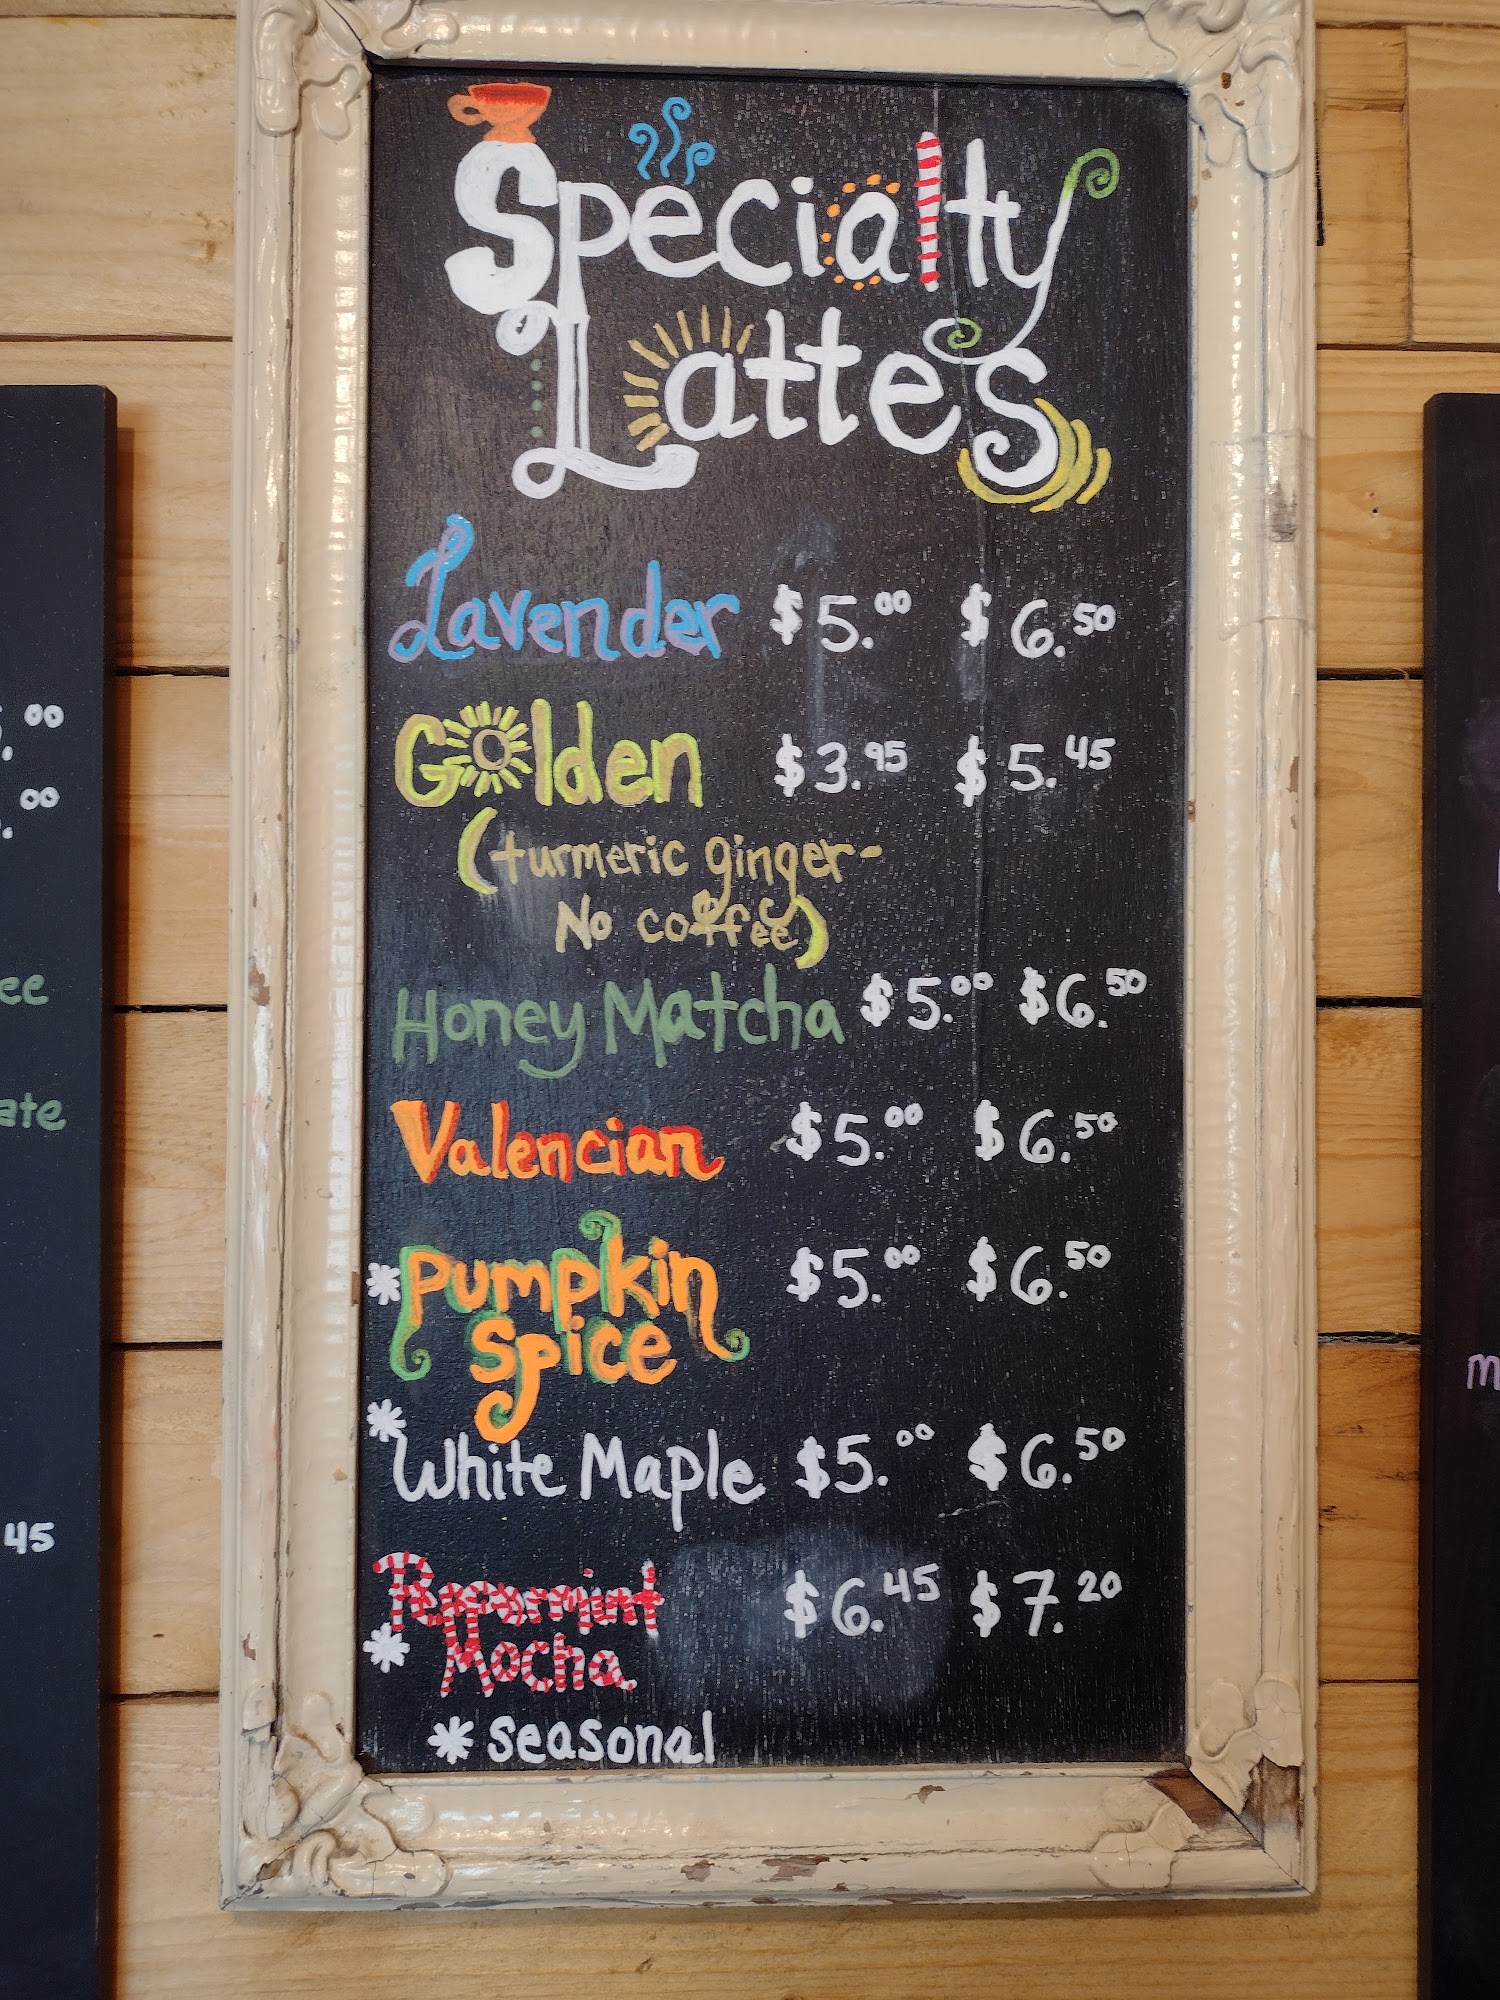 Specialty
Lattes
Lavender $5.00 $6.50
Golden $3.95 $5.45
(turmeric ginger-
No coffee)
Honey Matcha $5.00 $6.50
Valencian $5.00 $6.50
*Pumpkin $5.00 $6.50
Spice
*White Maple $5.00 $6.50
Peppermint $6.45 $7.20
*Mocha
*seasonal
.00
.00
ee
ate
45
m